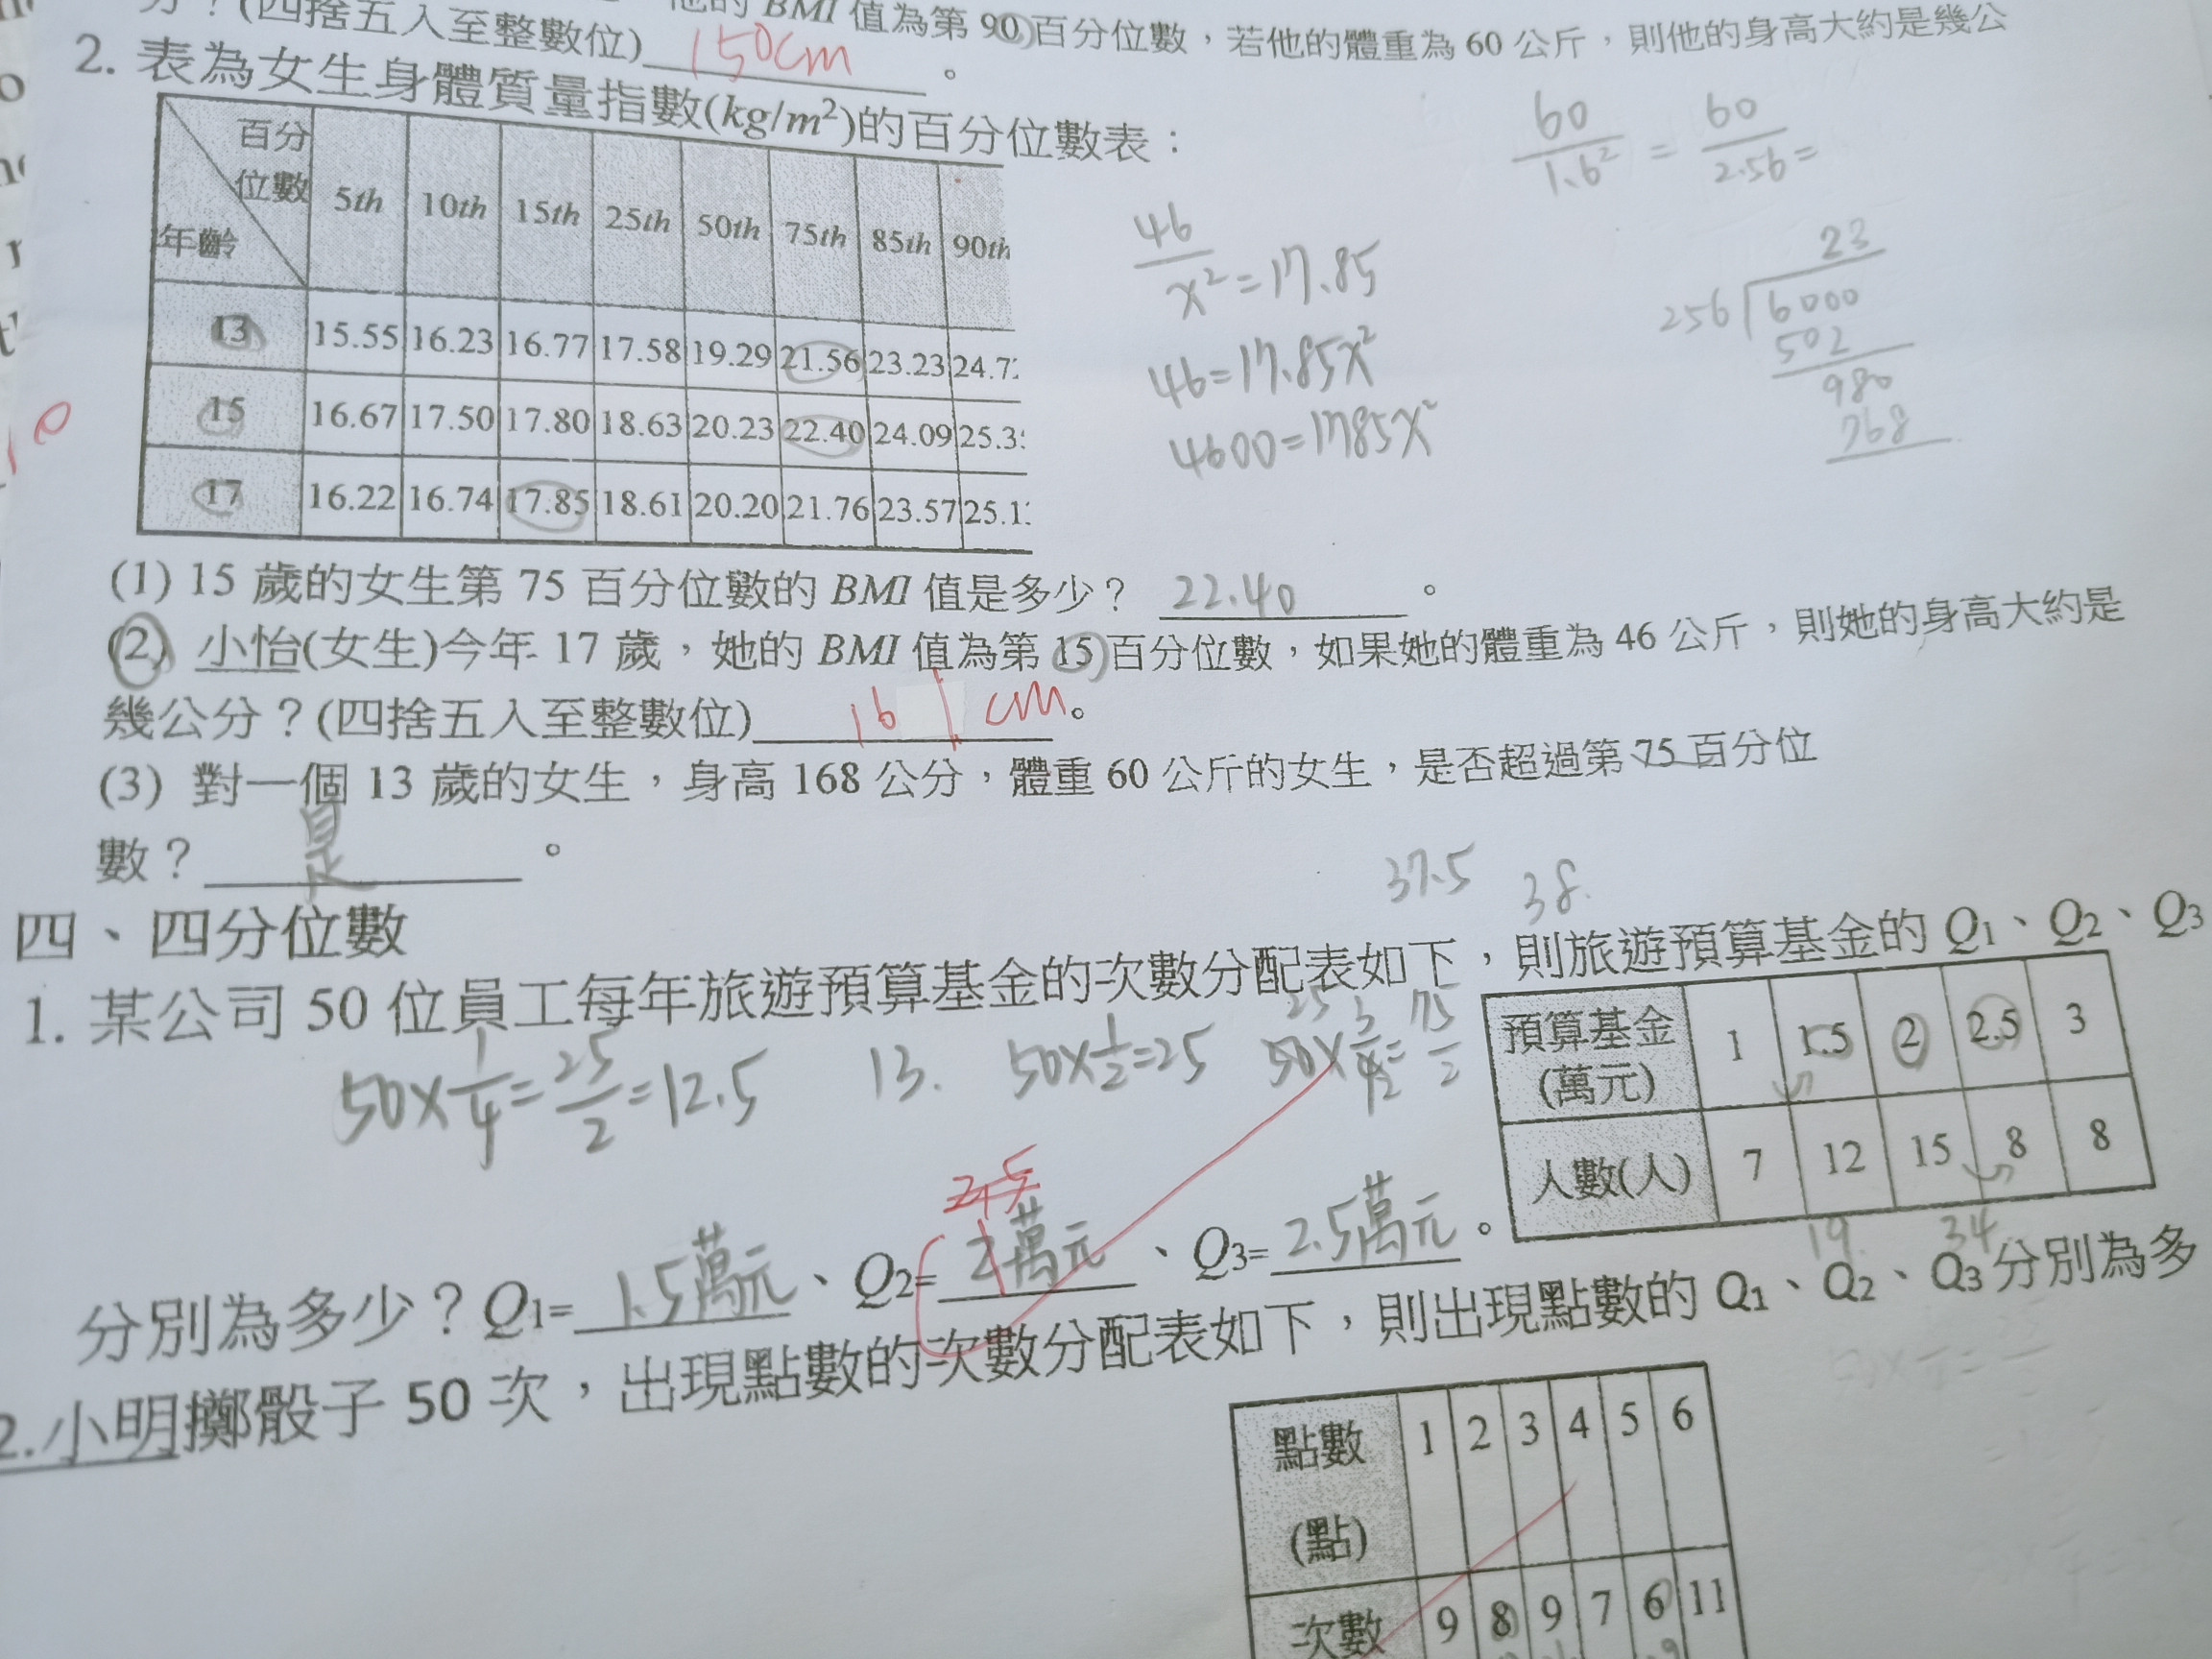 分？(四捨五入至整數位) 150cm 。
他的 BMI 值為第 90 百分位數，若他的體重為 60 公斤，則他的身高大約是幾公
2. 表為女生身體質量指數(kg/m²)的百分位數表：
百分位數 年齡 5th 10th 15th 25th 50th 75th 85th 90th
13 15.55 16.23 16.77 17.58 19.29 21.56 23.23 24.7
15 16.67 17.50 17.80 18.63 20.23 22.40 24.09 25.3
17 16.22 16.74 17.85 18.61 20.20 21.76 23.57 25.1
60/1.6² = 60/2.56 =
46/x² = 17.85
46=17.85x²
4600=1785x²
23
256 6000
502
980
768
(1) 15 歲的女生第 75 百分位數的 BMI 值是多少？ 22.40 。
(2) 小怡(女生)今年 17 歲，她的 BMI 值為第 15 百分位數，如果她的體重為 46 公斤，則她的身高大約是
幾公分？(四捨五入至整數位) 161 cm 。
(3) 對一個 13 歲的女生，身高 168 公分，體重 60 公斤的女生，是否超過第 75 百分位
數？ 是 。
37.5 38.
四、四分位數
1. 某公司 50 位員工每年旅遊預算基金的次數分配表如下，則旅遊預算基金的 Q1、Q2、Q3
50×1/4=25/2=12.5 13. 50×1/2=25 50×3/4=75/2
25 2
預算基金(萬元) 1 1.5 2 2.5 3
人數(人) 7 12 15 8 8
19. 34
2.5
分別為多少？Q1= 1.5萬元 、Q2= 2萬元 、Q3= 2.5萬元 。
2.小明擲骰子 50 次，出現點數的次數分配表如下，則出現點數的 Q1、Q2、Q3 分別為多
點數(點) 1 2 3 4 5 6
次數 9 8 9 7 6 11